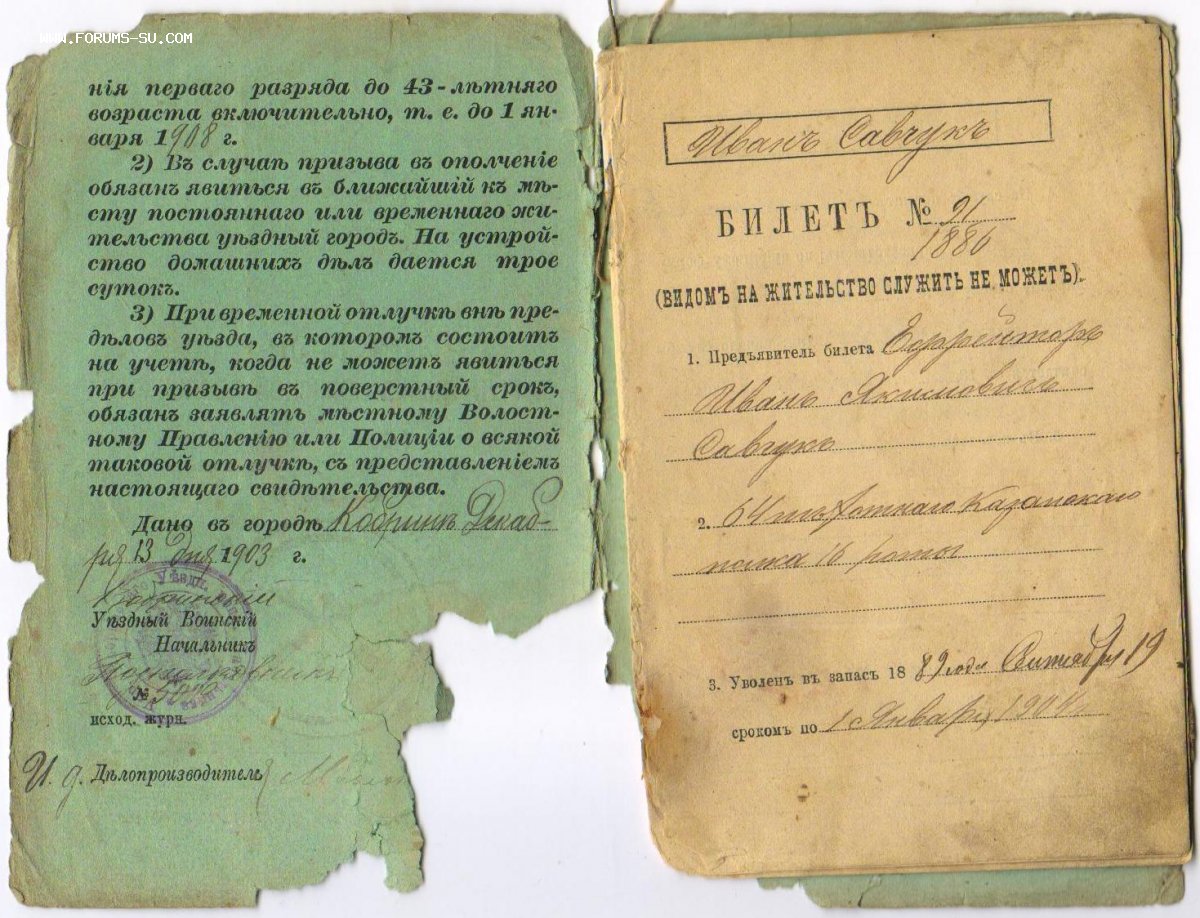 WWW.FORUMS-SU.COM
нія перваго разряда до 43-лѣтняго
возраста включительно, т. е. до 1 ян-
варя 1908 г.
2) Въ случаѣ призыва въ ополченіе
обязанъ явиться въ ближайшій къ мѣ-
сту постояннаго или временнаго жи-
тельства уѣздный городъ. На устрой-
ство домашнихъ дѣлъ дается трое
сутокъ.
3) При временной отлучкѣ внѣ пре-
дѣловъ уѣзда, въ которомъ состоитъ
на учетѣ, когда не можетъ явиться
при призывѣ въ поверстный срокъ,
обязанъ заявлять мѣстному Волост-
ному Правленію или Полиціи о всякой
таковой отлучкѣ, съ представленіемъ
настоящаго свидѣтельства.
Дано въ городѣ Кобринѣ Декаб-
ря 13 дня 1903 г.
Кобринскій
Уѣздный Воинскій
Начальникъ
№
исход. журн.
И. д. Дѣлопроизводитель
Иванъ Савчукъ
БИЛЕТЪ № 91
1886
(ВИДОМЪ НА ЖИТЕЛЬСТВО СЛУЖИТЬ НЕ МОЖЕТЪ).
1. Предъявитель билета Ефрейторъ
Иванъ Якимовичъ
Савчукъ
2. 64 пѣхотнаго Казанскаго
полка 16 роты
3. Уволенъ въ запасъ 1889 года Сентября 19
срокомъ по 1 Января 1904 г.